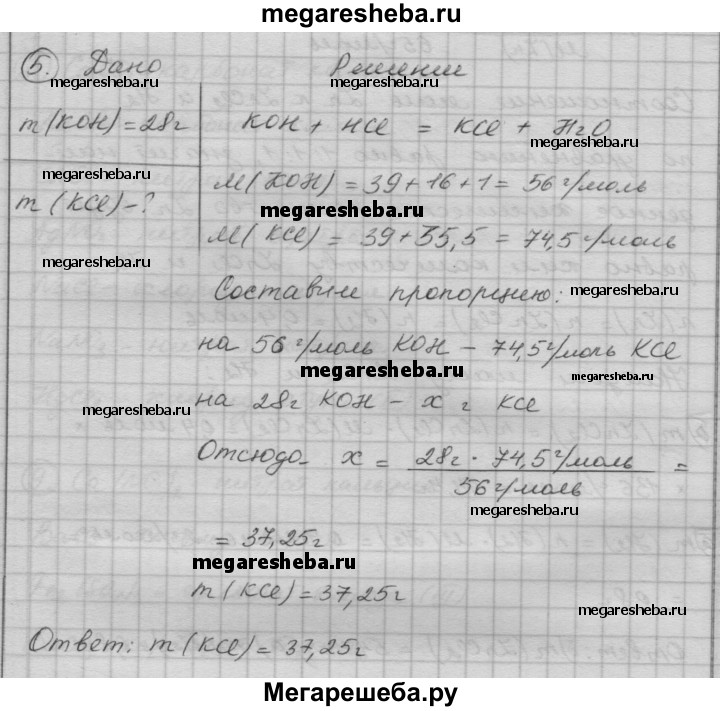 megaresheba.ru
5. Дано Решение
megaresheba.ru megaresheba.ru
m(KOH)=28г KOH + HCl = KCl + H2O
megaresheba.ru
m(KCl)-? M(KOH)=39+16+1=56г/моль
megaresheba.ru
M(KCl)=39+35,5=74,5г/моль
megaresheba.ru
Составим пропорцию:
megaresheba.ru
на 56г/моль KOH - 74,5г/моль KCl
megaresheba.ru
megaresheba.ru
на 28г KOH - x г KCl
megaresheba.ru
Отсюда x = 28г · 74,5г/моль =
56г/моль
megaresheba.ru
= 37,25г
megaresheba.ru
m(KCl)=37,25г
megaresheba.ru
Ответ: m(KCl)=37,25г
Мегарешеба.ру